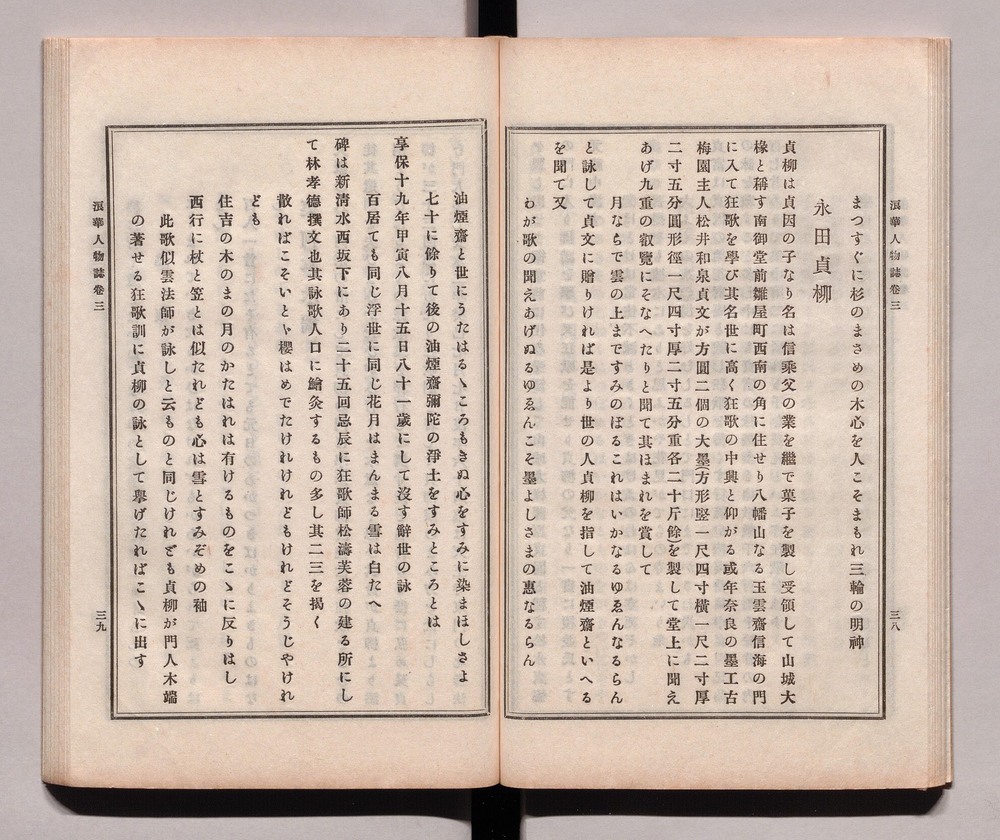 浪華人物誌卷三
三八
まつすぐに杉のまさめの木心を人こそまもれ三輪の明神
永田貞柳
貞柳は貞因の子なり名は信乘父の業を繼で菓子を製し受領して山城大
椽と稱す南御堂前雛屋町西南の角に住せり八幡山なる玉雲齋信海の門
に入て狂歌を學び其名世に高く狂歌の中興と仰がる或年奈良の墨工古
梅園主人松井和泉貞文が方圓二個の大墨(方形竪一尺四寸橫一尺二寸厚
二寸五分圓形徑一尺四寸厚二寸五分重各二十斤餘)を製して堂上に聞え
あげ九重の叡覽にそなへたりと聞て其ほまれを賞して
月ならで雲の上まですみのぼるこれはいかなるゆゑんなるらん
と詠して貞文に贈りければ是より世の人貞柳を指して油煙齋といへる
を聞て又
わが歌の聞えあげぬるゆゑんこそ墨よしさまの惠なるらん
油煙齋と世にうたはるゝころもきぬ心をすみに染まほしさよ
七十に餘りて後の油煙齋彌陀の淨土をすみところとは
享保十九年甲寅八月十五日八十一歲にして沒す辭世の詠
百居ても同じ浮世に同じ花月はまんまる雪は白たへ
碑は新淸水西坂下にあり二十五回忌辰に狂歌師松濤芙蓉の建る所にし
て林孝德撰文也其詠歌人口に鱠灸するもの多し其二三を揭く
散ればこそいとゝ櫻はめでたけれけれどもけれどそうじやけれ
ども
住吉の木のまの月のかたはれは有けるものをこゝに反りはし
西行に杖と笠とは似たれども心は雪とすみぞめの袖
此歌似雲法師が詠しと云ものと同じけれども貞柳が門人木端
の著せる狂歌訓に貞柳の詠として擧げたればこゝに出す
浪華人物誌卷三
三九